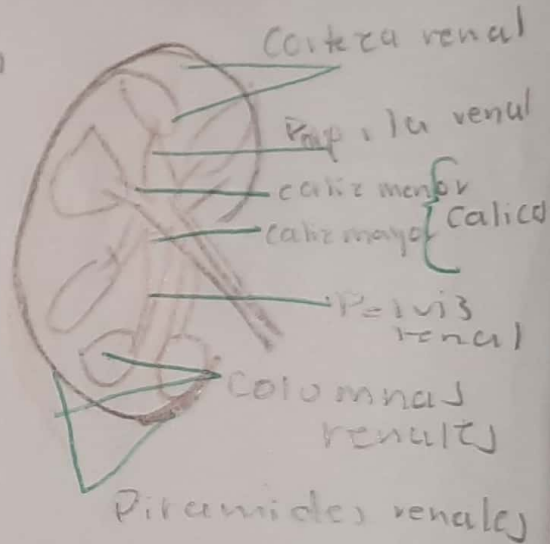 Corteza renal
Papila renal
caliz menor
caliz mayor
Calices
Pelvis
renal
Columnas
renales
Piramides renales